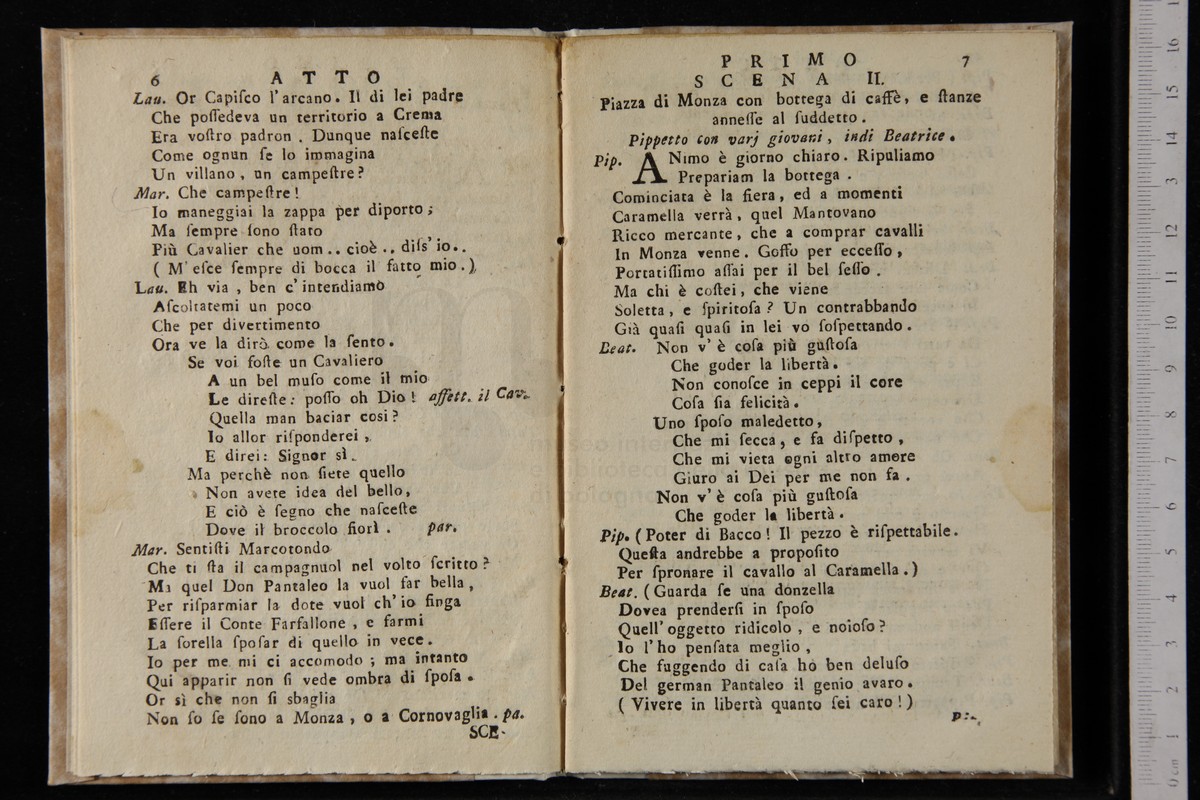 6 ATTO
Lau. Or Capiſco l'arcano. Il di lei padre
Che poſſedeva un territorio a Crema
Era voſtro padron . Dunque naſceſte
Come ognun ſe lo immagina
Un villano , un campeſtre?
Mar. Che campeſtre!
Io maneggiai la zappa per diporto;
Ma ſempre ſono ſtato
Più Cavalier che uom .. cioè .. diſs' io..
( M' eſce ſempre di bocca il fatto mio.)
Lau. Eh via , ben c'intendiamo
Aſcoltatemi un poco
Che per divertimento
Ora ve la dirò come la ſento.
Se voi foſte un Cavaliero
A un bel muſo come il mio
Le direſte: poſſo oh Dio! affett. il Cav.
Quella man baciar cosi?
Io allor riſponderei ,
E direi: Signor sì.
Ma perchè non ſiete quello
Non avete idea del bello,
E ciò è ſegno che naſceſte
Dove il broccolo fiorì . par.
Mar. Sentiſti Marcotondo
Che ti ſta il campagnuol nel volto ſcritto?
Ma quel Don Pantaleo la vuol far bella,
Per riſparmiar la dote vuol ch'io finga
Eſſere il Conte Farfallone , e farmi
La ſorella ſpoſar di quello in vece.
Io per me mi ci accomodo ; ma intanto
Qui apparir non ſi vede ombra di ſpoſa .
Or sì che non ſi sbaglia
Non ſo ſe ſono a Monza , o a Cornovaglia . pa.
SCE-
PRIMO 7
SCENA II.
Piazza di Monza con bottega di caffè, e ſtanze
anneſſe al ſuddetto .
Pippetto con varj giovani , indi Beatrice .
Pip. ANimo è giorno chiaro. Ripuliamo
Prepariam la bottega .
Cominciata è la fiera, ed a momenti
Caramella verrà, quel Mantovano
Ricco mercante, che a comprar cavalli
In Monza venne. Goffo per ecceſſo,
Portatiſſimo aſſai per il bel ſeſſo .
Ma chi è coſtei, che viene
Soletta, e ſpiritoſa? Un contrabbando
Già quaſi quaſi in lei vo ſoſpettando.
Beat. Non v'è coſa più guſtoſa
Che goder la libertà.
Non conoſce in ceppi il core
Coſa ſia felicità.
Uno ſpoſo maledetto,
Che mi ſecca, e fa diſpetto ,
Che mi vieta ogni altro amore
Giuro ai Dei per me non fa .
Non v'è coſa più guſtoſa
Che goder la libertà .
Pip. (Poter di Bacco! Il pezzo è riſpettabile.
Queſta andrebbe a propoſito
Per ſpronare il cavallo al Caramella.)
Beat. (Guarda ſe una donzella
Dovea prenderſi in ſpoſo
Quell'oggetto ridicolo , e noioſo?
Io l'ho penſata meglio ,
Che fuggendo di caſa ho ben deluſo
Del german Pantaleo il genio avaro.
( Vivere in libertà quanto ſei caro!)